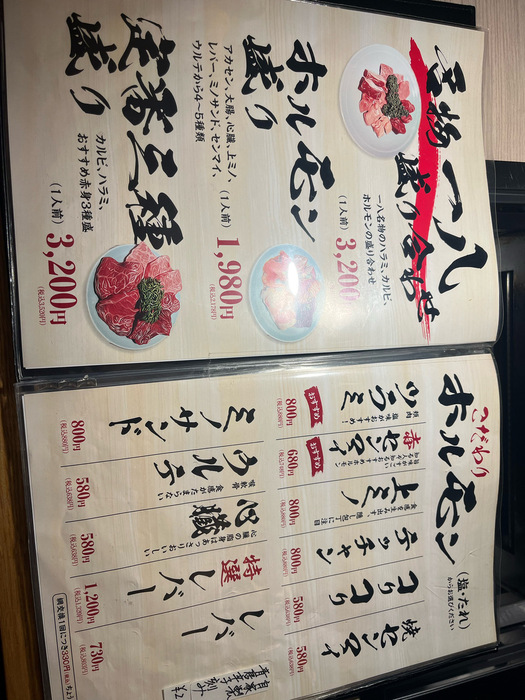 名物
一八
盛り合わせ
一八名物のハラミ、カルビ、
ホルモンの盛り合わせ
(1人前) 3,200
ホルモン
盛り
アカセン、大腸、心臓、上ミノ、
レバー、ミノサンド、センマイ、
ウルテから4~5種類
(1人前) 1,980円
(税込2,178円)
定番三種
盛り
カルビ、ハラミ、
おすすめ赤身3種盛
(1人前) 3,200円
(税込3,520円)
こだわり
ホルモン
(塩・たれ)
からお選びください
ツラミ
頬肉
塩味がおすすめ!
おすすめ
800円
(税込880円)
赤センマイ
おすすめ
680円
(税込748円)
上ミノ
800円
(税込880円)
テッチャン
800円
(税込880円)
コリコリ
580円
(税込638円)
焼センマイ
580円
(税込638円)
ミノサンド
800円
(税込880円)
ウルテ
喉軟骨
食感がたまらない
580円
(税込638円)
心臓
心臓の脂身はあっさりおいしい
580円
(税込638円)
特選
レバー
1,200円
(税込1,320円)
レバー
730円
網交換1回につき330円(税込)
自家製